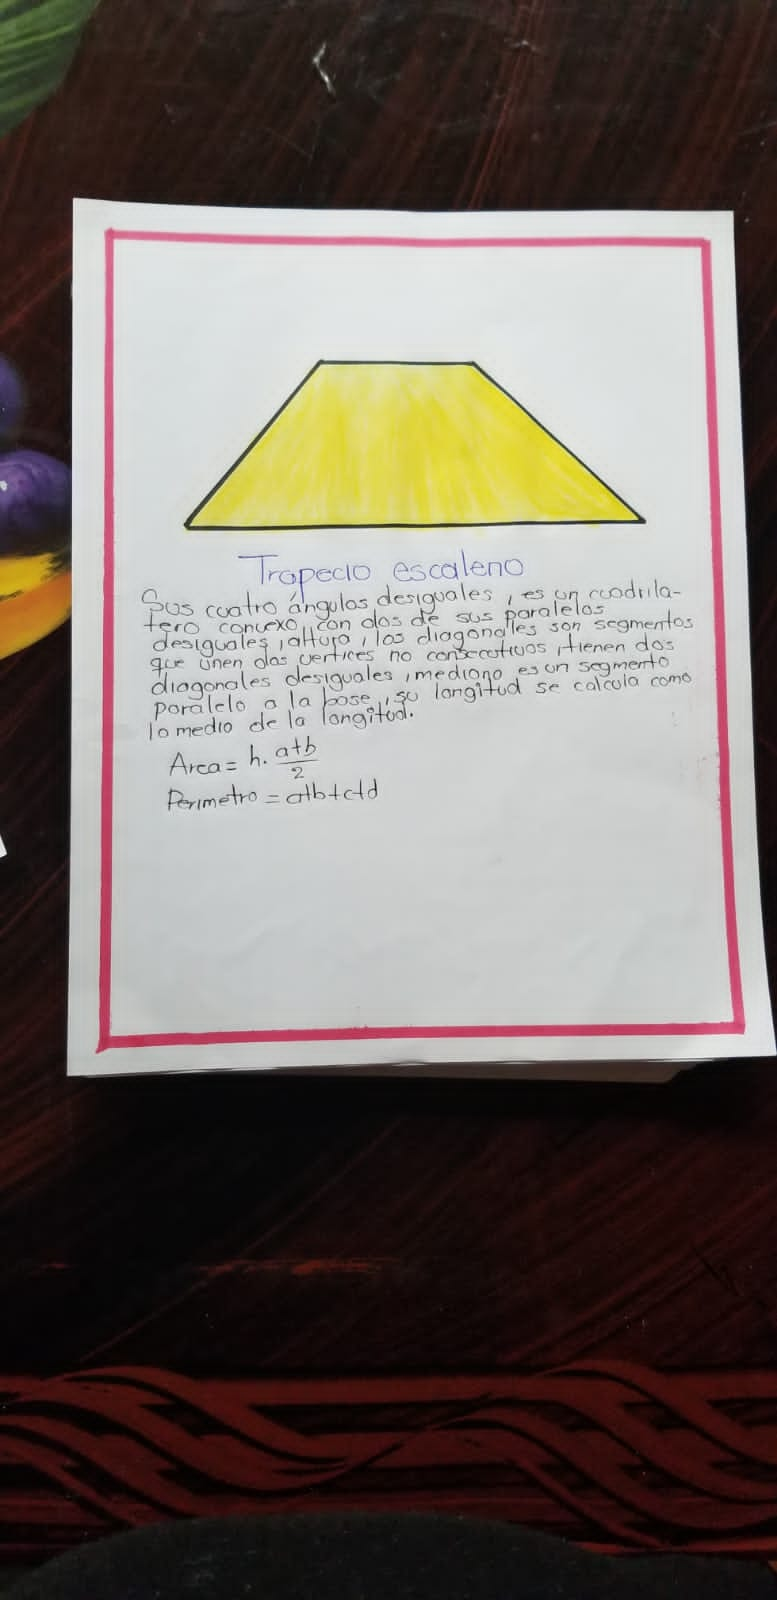 Trapecio escaleno
Sus cuatro ángulos desiguales, es un cuadrila-
tero convexo, con dos de sus paralelos
desiguales, altura, las diagonales son segmentos
que unen dos vertices no consecutivos, tienen dos
diagonales desiguales, mediana es un segmento
paralelo a la base, su longitud se calcula como
la media de la longitud.
Area = h. a+b/2
Perimetro = a+b+c+d